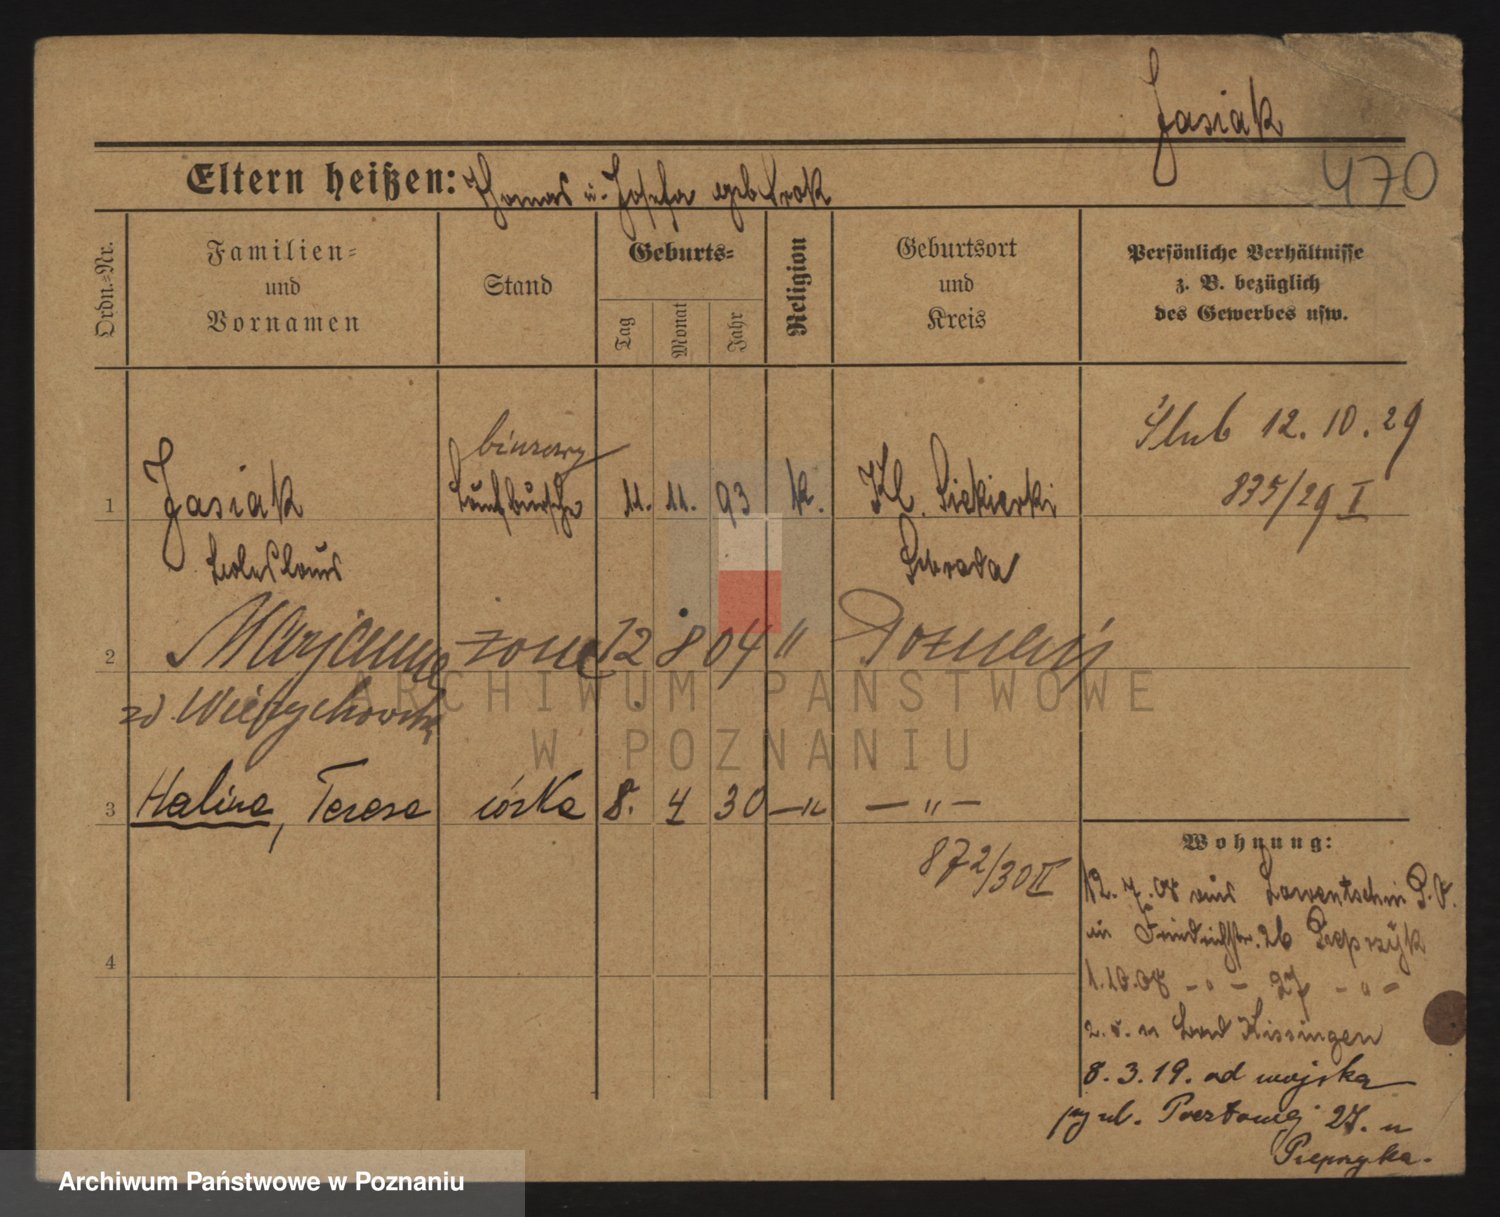 Jasiak
470
Eltern heißen: Thomas u. Josefa geb
Ordn.-Nr.
Familien- und Vornamen
Stand
Geburts-
Tag
Monat
Jahr
Religion
Geburtsort und Kreis
Persönliche Verhältnisse z. B. bezüglich des Gewerbes usw.
biurowy
1 Jasiak Laufbursche 11. 11. 93 k. Kl. Siekierki
Boleslaus Schroda
Ślub 12.10.29
835/29 I
2 Marjanna żona 12 8 04 " Poznań
zd
3 Halina, Teresa córka 8. 4 30 —"— —"—
872/30 II
4
Wohnung:
12.7.08 aus
in Friedrichstr. 26 Pieprzyk
1.10.08 - " - 27 - " -
Bad Kissingen
8.3.19. od wojska
przy ul. Pocztowej 27. u
Pieprzyka.
ARCHIWUM PAŃSTWOWE
W POZNANIU
Archiwum Państwowe w Poznaniu